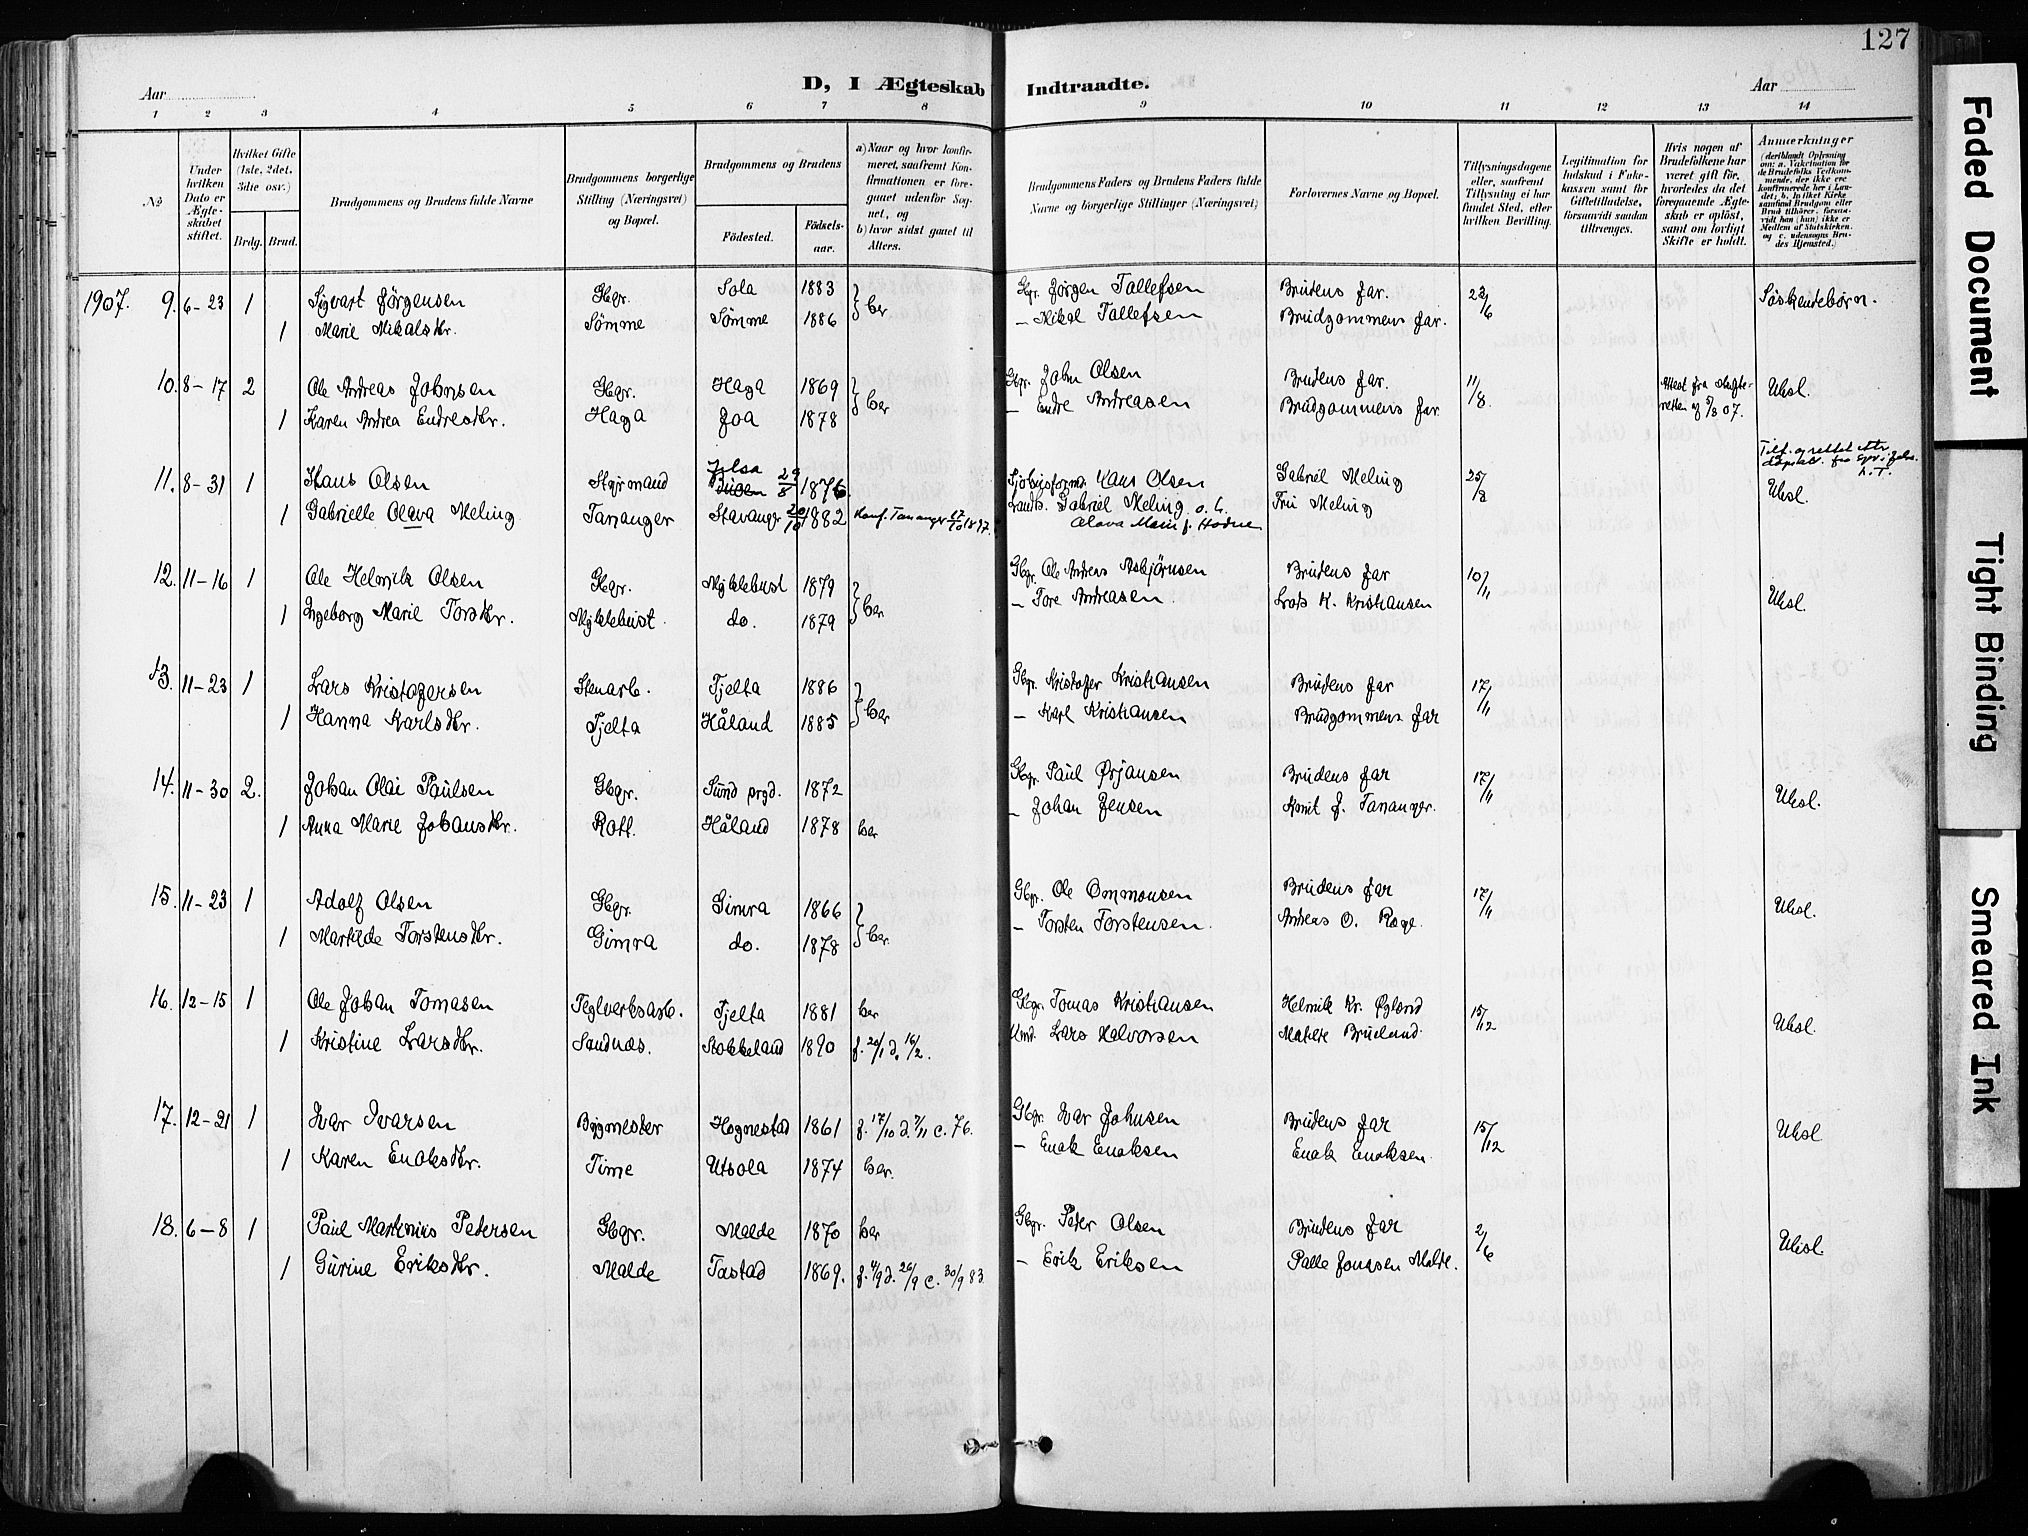 127
Aar
D, I Ægteskab Indtraadte.
Aar
1 2 3 4 5 6 7 8 9 10 11 12 13 14
№
Under hvilken Dato er Ægteskabet stiftet.
Hvilket Gifte (1ste, 2det, 3die osv.)
Brdg. Brud.
Brudgommens og Brudens fulde Navne
Brudgommens borgerlige Stilling (Næringsvei) og Bopæl.
Brudgommens og Brudens
Fødested. Fødselsaar.
a) Naar og hvor konfirmeret, saafremt Konfirmationen er foregaaet udenfor Sognet, og
b) hvor sidst gaaet til Alters.
Brudgommens Faders og Brudens Faders fulde Navne og borgerlige Stillinger (Næringsvei)
Forlovernes Navne og Bopæl.
Tillysningsdagene eller, saafremt Tillysning ei har fundet Sted, efter hvilken Bevilling.
Legitimation for Indskud i Enkekassen samt for Giftetilladelse, forsaavidt saadan tiltrænges.
Hvis nogen af Brudefolkene har været gift før, hvorledes da det foregaaende Ægteskab er opløst, samt om lovligt Skifte er holdt.
Anmærkninger
1907. 9. 6-23 1 Sigvart Jörgensen Gbgr. Sola 1883 her Gbgr. Jörgen Tallefsen Brudens far. 23/6 Söskendebörn.
1 Marie Mikalsdtr. Sömme Sömme 1886 - Mikal Tallefsen Brudgommens far.
10. 8-17 2 Ole Andreas Johnsen Gbgr. Haga 1869 her Gbgr. John Olsen Brudens far. 11/8 Attest fra skifteretten af 5/8 07. Uksl.
1 Karen Andrea Endresdtr. Haga Joa 1878 - Endre Andreasen Brudgommens far
11. 8-31 1 Hans Olsen Styrmand Jelsa 29/8 1876 Hans Olsen Gabriel Meling 25/8 Uksl.
1 Gabrielle Olava Meling Tananger Stavanger 20/10 1882 Konf. Tananger 17/10 1897. Landh. Gabriel Meling o. h. Fru Meling
Olava Marie f. Hodne
12. 11-16 1 Ole Helmik Olsen Gbgr. Myklebust 1879 her Gbgr. Ole Andreas Asbjörnsen Brudens far 10/11 Uksl.
1 Ingeborg Marie Torsdtr. Myklebust. do. 1879 - Tore Andreasen Lars K. Kristiansen
13. 11-23 1 Lars Kristofersen Stenarb. Tjelta 1886 her Gbgr. Kristofer Kristiansen Brudens far 17/11
1 Hanna Karlsdtr. Tjelta Håland 1885 - Karl Kristiansen Brudgommens far
14. 11-30 2. Johan Olai Paulsen Gbgr. Sund prgd. 1872 Gbgr. Paul Ørjansen Brudens far 17/11 Uksl.
1 Anna Marie Johansdtr. Rott. Håland 1878 her - Johan Jensen Tananger.
15. 11-23 1 Adolf Olsen Gbgr. Gimra 1866 her Gbgr. Ole Ommonsen Brudens far 17/11 Uksl.
1 Martilde Torstensdtr. Gimra do. 1878 - Torsten Torstensen. Andreas O. Rage.
16. 12-15 1 Ole Johan Tomasen Teglverksarb. Tjelta 1881 her Gbgr. Tomas Kristiansen Helmik Kr. Øgland 15/12 Uksl.
1 Kristine Larsdtr. Sandnæs. Stokkeland 1890 f. 20/1 d. 16/2. Lars Halvorsen Matilde Brueland
17. 12-21 1 Ivar Ivarsen Bygmester Hognestad 1861 f. 17/10 d. 7/11 c. 76. Gbgr. Ivar Johnsen Brudens far 15/12 Uksl
1 Karen Enoksdtr. Time Utsola 1874 her. - Enok Enoksen Enok Enoksen.
18. 6-8 1 Paul Martinius Petersen Gbgr. Malde 1870 her Gbgr. Peter Olsen Brudens far 2/6 Uksl.
1 Gurine Eriksdtr. Malde Tastad 1869. f. 4/9 d. 26/9 c. 30/9 83. - Erik Eriksen Palle Jonassen Malde.
Faded Document
Tight Binding
Smeared Ink